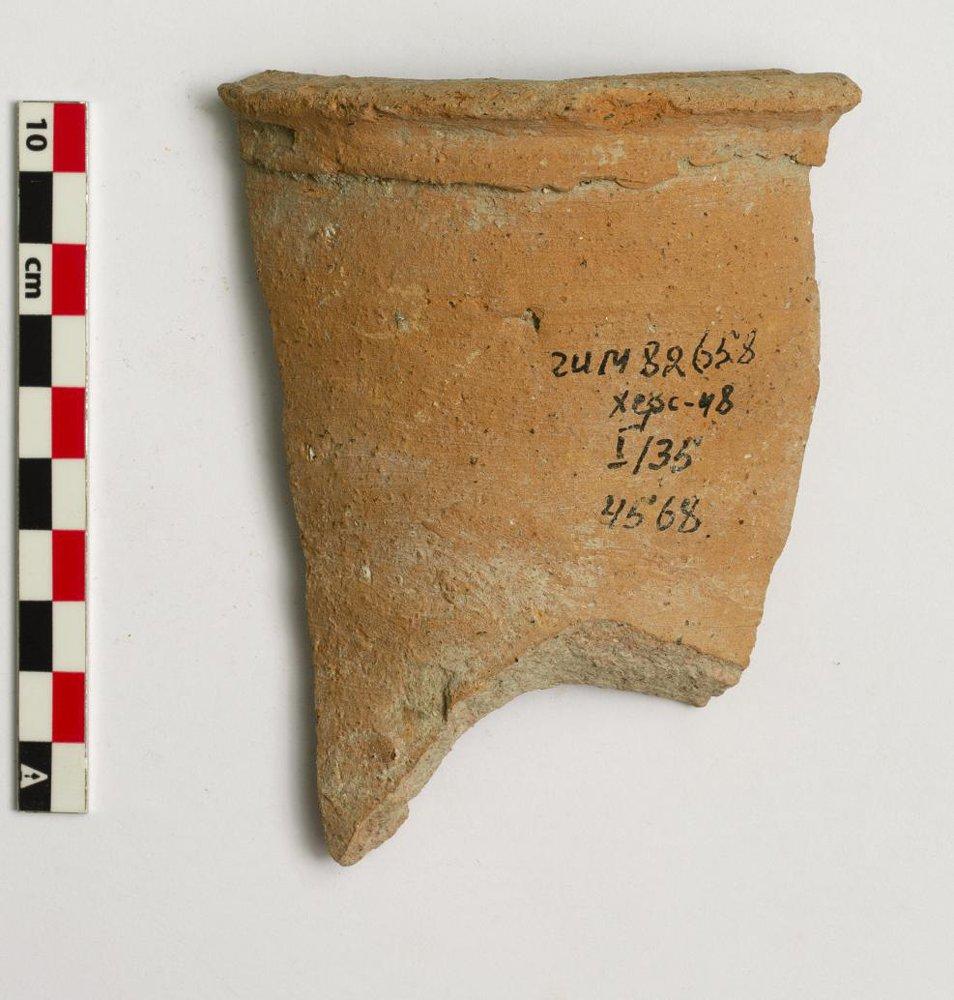 10
cm
гим 82658
херс-48
I/35
4568